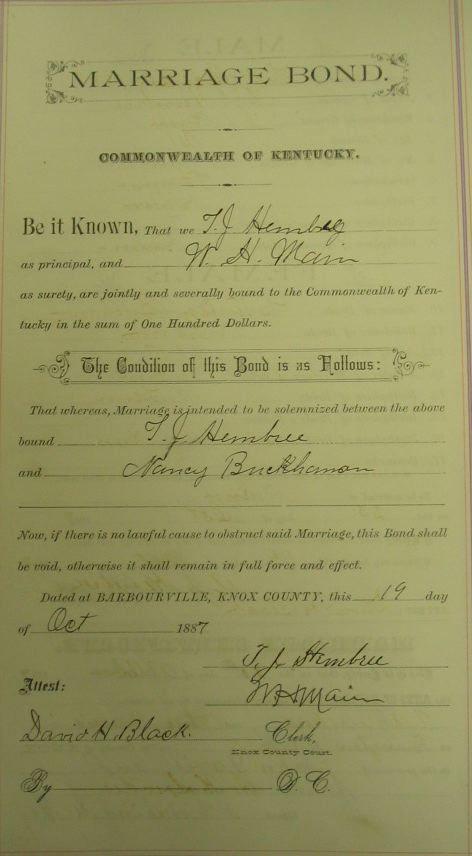 MARRIAGE BOND.
COMMONWEALTH OF KENTUCKY.
Be it Known, That we T. J Hembree
as principal, and W. H. Main
as surety, are jointly and severally bound to the Commonwealth of Ken-
tucky in the sum of One Hundred Dollars.
The Condition of this Bond is as Follows:
That whereas, Marriage is intended to be solemnized between the above
bound T. J Hembree
and Nancy Buckhanon
Now, if there is no lawful cause to obstruct said Marriage, this Bond shall
be void, otherwise it shall remain in full force and effect.
Dated at BARBOURVILLE, KNOX COUNTY, this 19 day
of Oct 1887
T. J. Hembree
Attest: W H Main
David H. Black. Clerk,
Knox County Court.
By D. C.